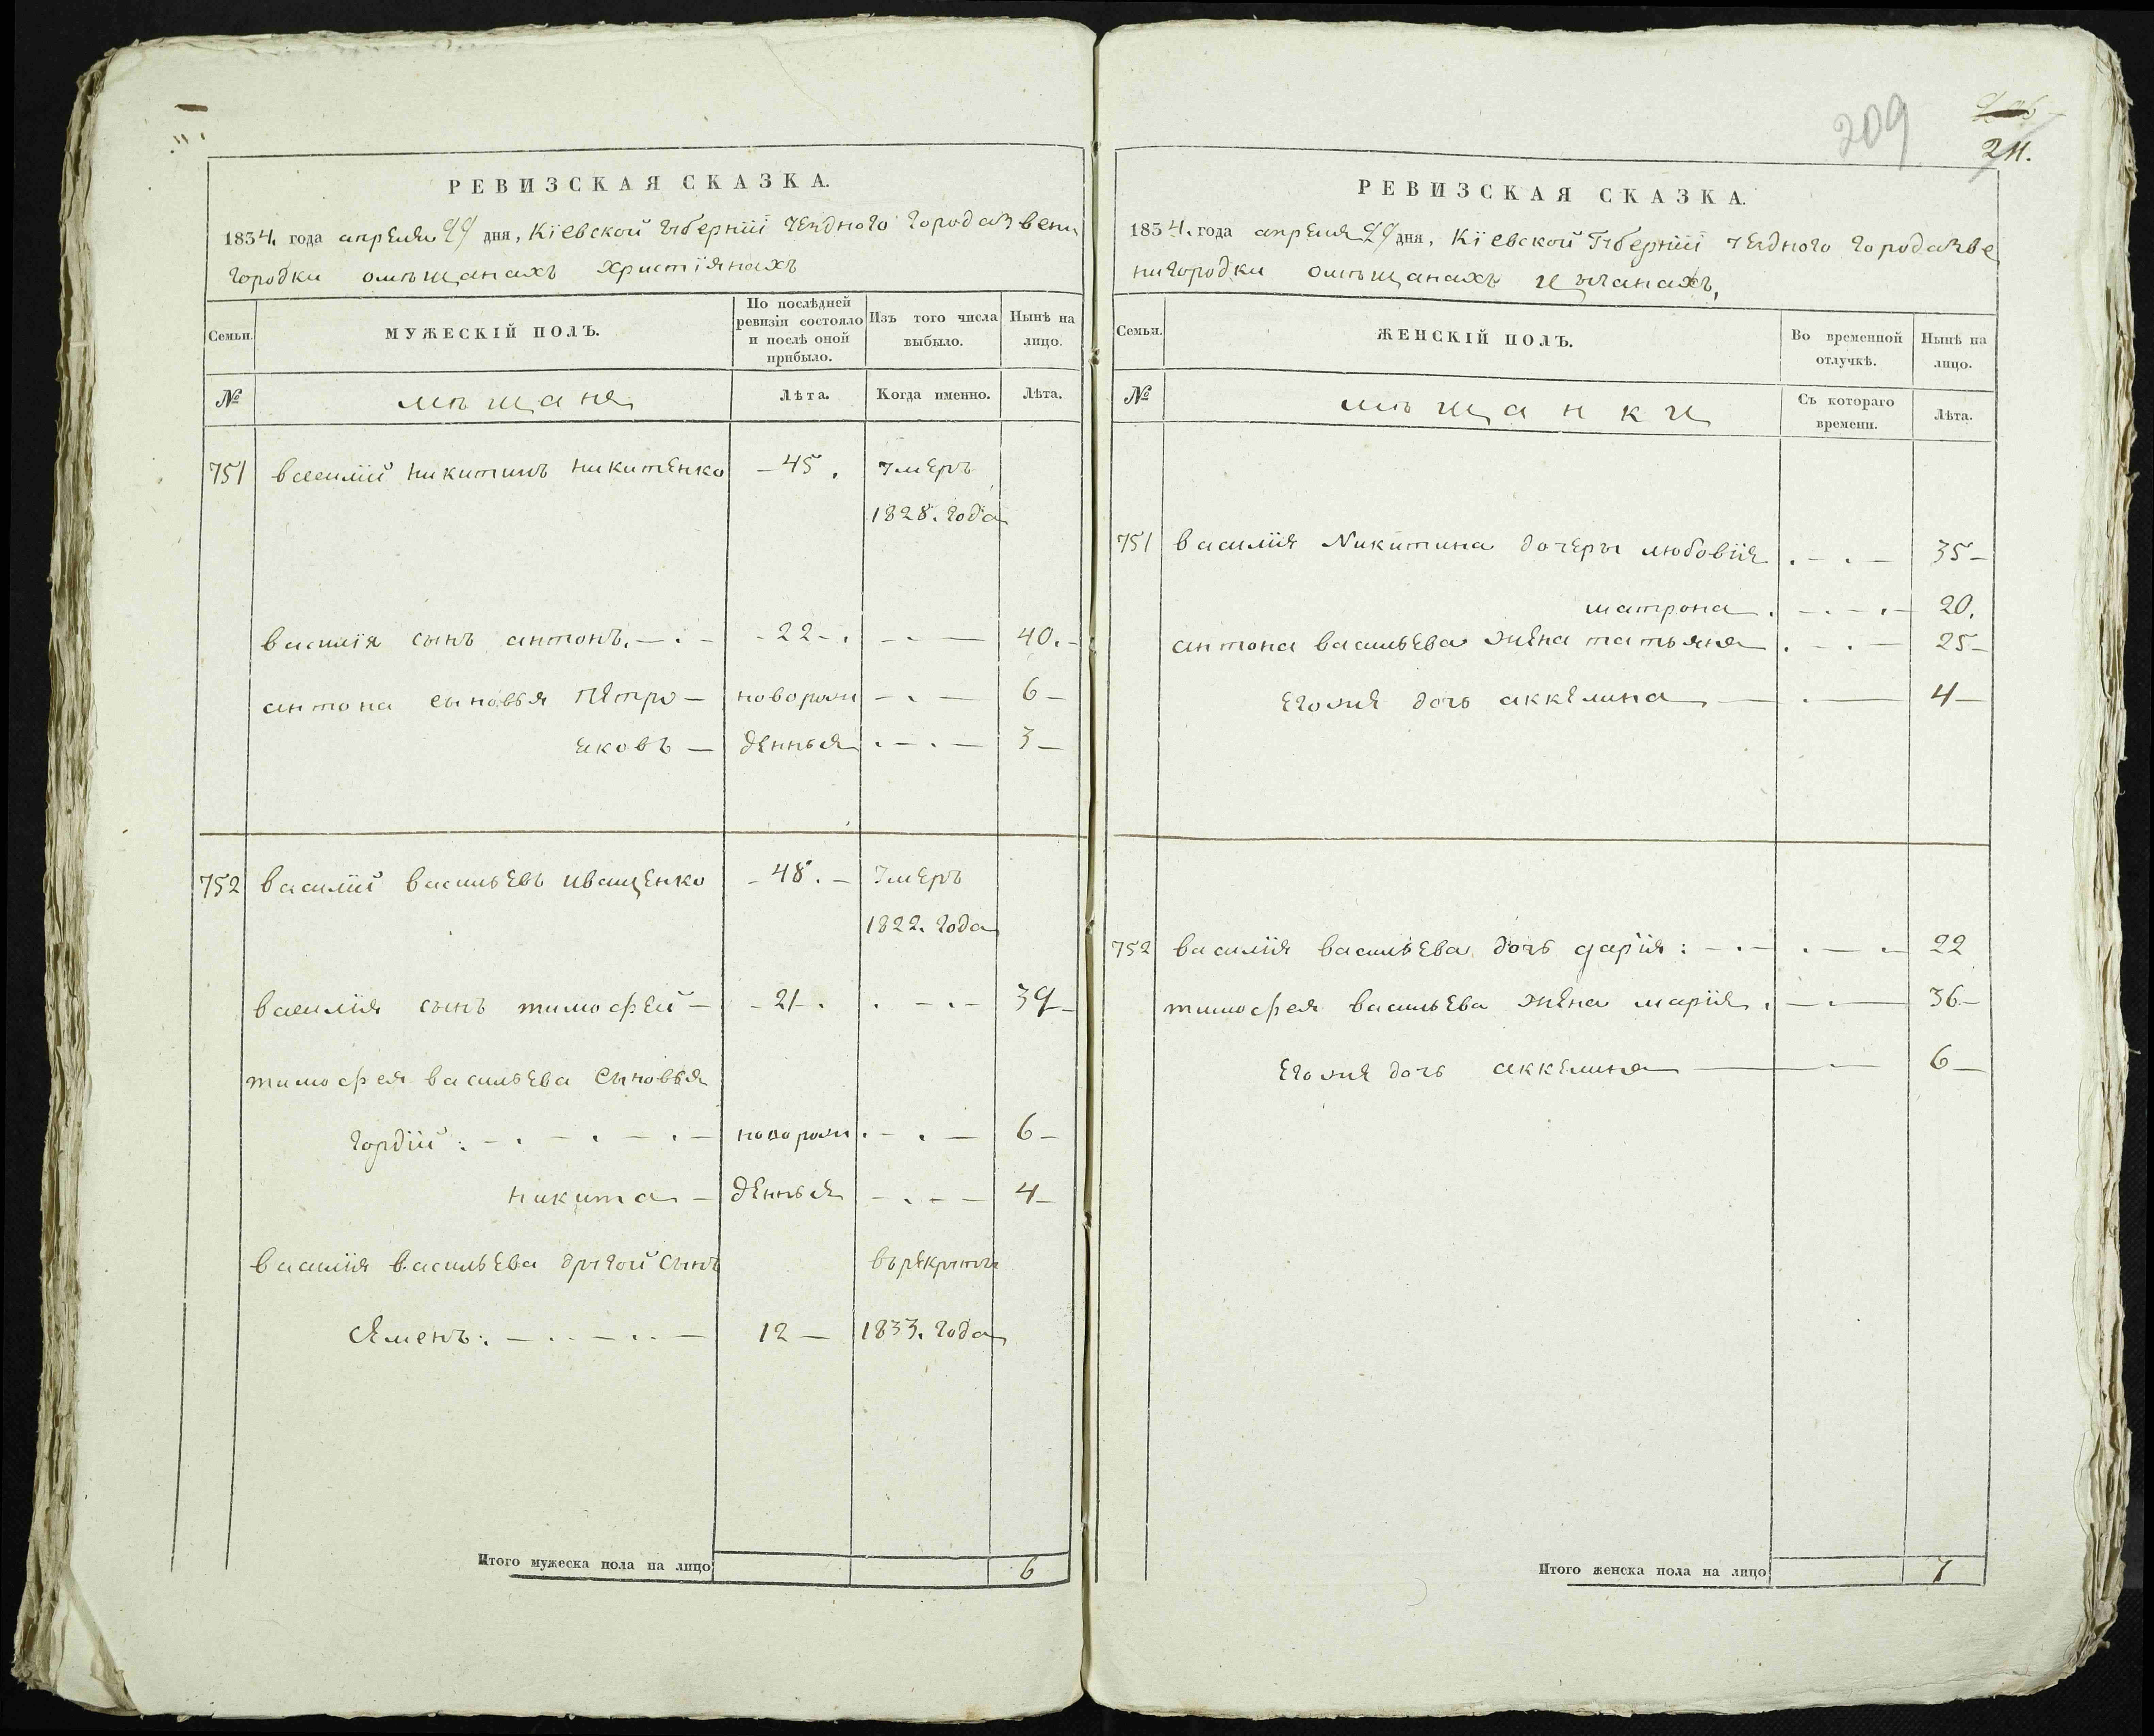 РЕВИЗСКАЯ СКАЗКА.
1834. года апреля 29 дня, Кіевской губерніи уезднаго города Звени
городки о мѣщанахъ христіянахъ
Семьи. МУЖЕСКІЙ ПОЛЪ. По послѣдней ревизіи состояло и послѣ оной прибыло. Изъ того числа выбыло. Нынѣ на лицо.
№ мѣщане Лѣта. Когда именно. Лѣта.
751 василій никитинъ никитенко 45. умеръ
1828. года
василія сынъ антонъ. 22. 40.
антона сыновья петро новорож 6
яковъ денныя 3
752 василій васильевъ иващенко 48. умеръ
1822. года
василія сынъ тимофей 21. 39
тимофея васильева сыновья
гордій: новорож 6
никита денныя 4
василія васильева другой сынъ
въ рекруты
семенъ: 12 1833. года
Итого мужеска пола на лицо 6
209
211.
РЕВИЗСКАЯ СКАЗКА.
1834. года апреля 29 дня, Кіевской Губерніи уезднаго города Зве
нигородки о мѣщанахъ
Семьи. ЖЕНСКІЙ ПОЛЪ. Во временной отлучкѣ. Нынѣ на лицо.
№ мѣщанки Съ котораго времени. Лѣта.
751 василія Никитина дочеры любовія 35
матрона. 20.
антона васильева жена татьяна 25
егоже дочь аккелина 4
752 василія васильева дочь дарія: 22
тимофея васильева жена марія. 36
егоже дочь аккелина 6
Итого женска пола на лицо 7